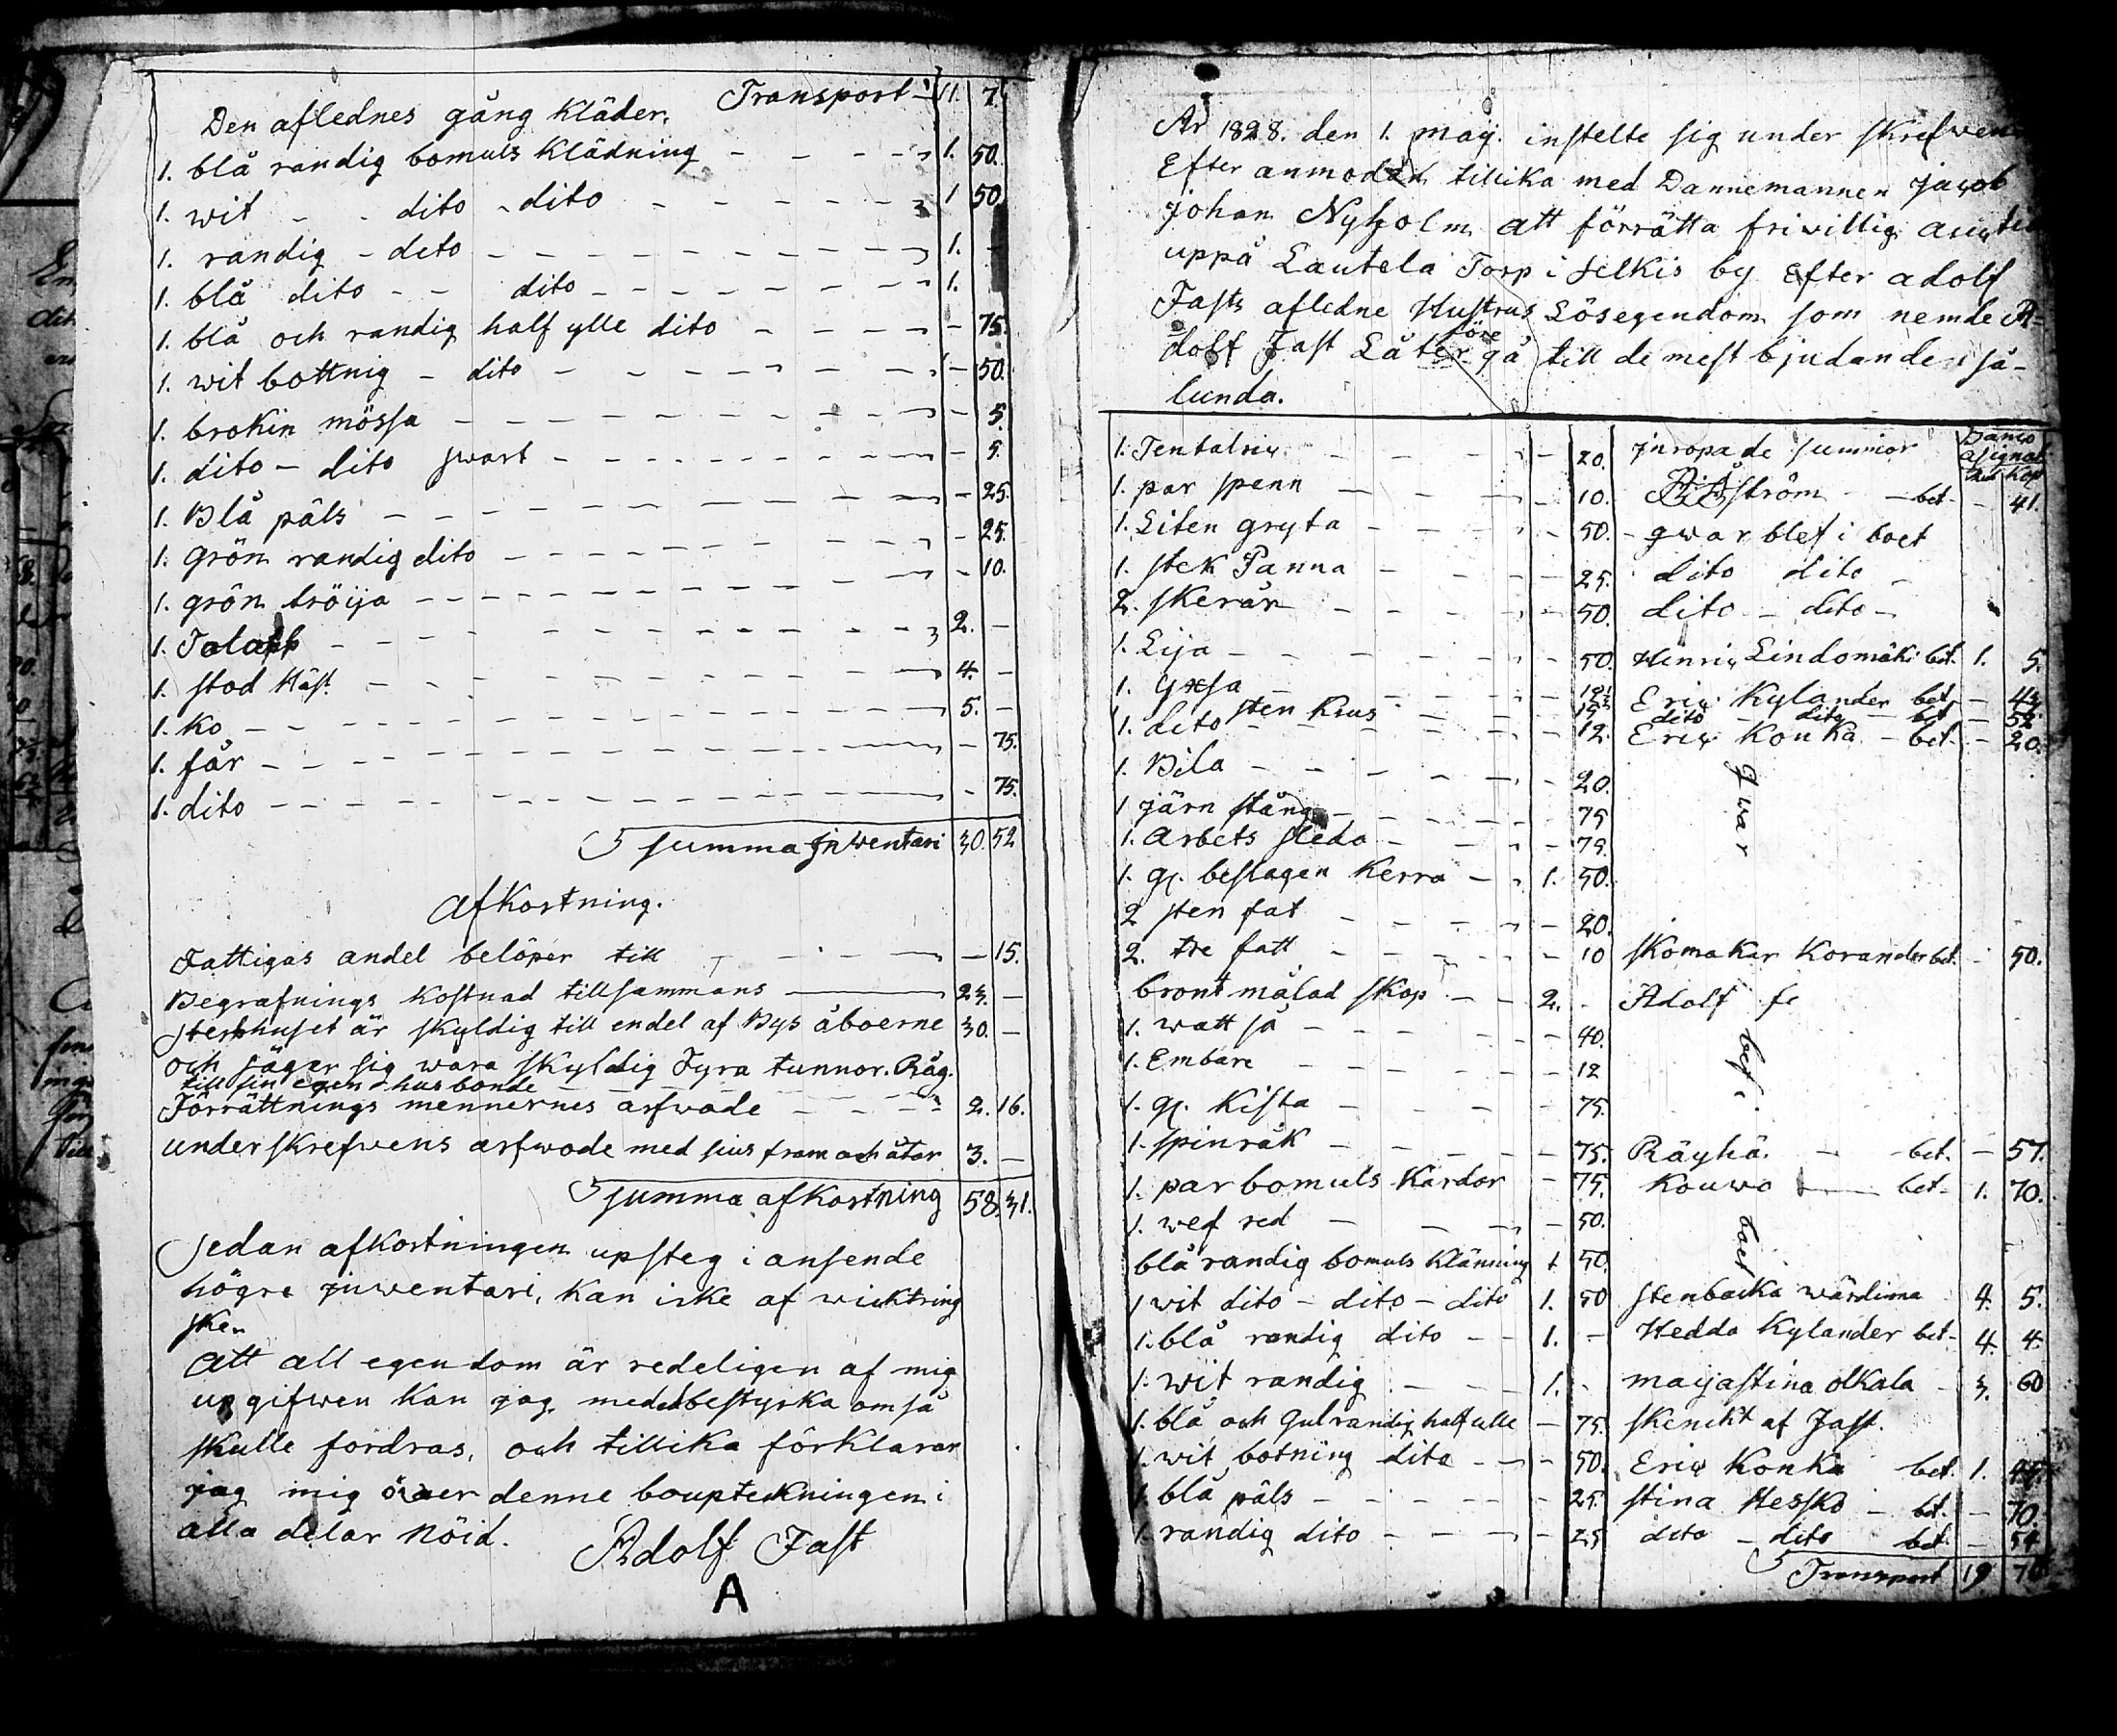 Transport 11. 7.
Den aflednes gång Kläder.
1. blå randig bomuls Klädning - - - - 1. 50.
1. wit - - dito - dito - - - - - - 1 50
1. randig - dito - - - - - - - - 1. -
1. blå dito - - dito - - - - - - 1.
1. blå och randig half ylle dito - - - - - 75.
1. wit bottnig - dito - - - - - - - 50.
1. brokin mössa - - - - - - - - 5.
1. dito - dito swart - - - - - - - - 5.
1. Blå päls - - - - - - - - 25.
1. grön randig dito - - - - - - - 25.
1. grön tröija - - - - - - - - 10.
1. - - - - - - - - 2. -
1. stod Häst. - - - - - - - 4. -
1. Ko - - - - - - - - 5. -
1. får - - - - - - - - - 75.
1. dito - - - - - - - - - 75.
summa jnwentari 30. 52
afkortning.
Fattigas andel belöper till - - - - 15.
Begrafnings Kostnad tillsammans 23. -
Sterbhuset är skyldig till endel af Bys åboerne 30. -
och säger sig wara skyldig Fyra tunnor. Råg.
till sin egen husbonde - - - -
Förrättnings mennernes arfwode - - - 2. 16.
underskrefwens arfwode med sius fram och åter 3. -
summa afkortning 58. 31.
Sedan afkortningen upsteg i ansende
högre jnwentari, Kan icke af wicktring
ske.
Att all egendom är redeligen af mig
upgifwen Kan jag med edbestyrka om så
skulle fordras, och tillika förklarar
jag mig öwer denne boupteckningen i
alla delar Nöid.
Adolf Fast
A
År 1828. den 1. maij. instelte sig under skrefwen
Efter anmodan tillika med Dannemannen jacob
Johan Nyholm att förrätta frivillig auction
uppå Lautela Torp i Selkis by Efter adolf
Fasts afledne Hustrus Lösegendom som nemde A-
före
dolf Fast Låter gå till de mest bjudande så-
lunda.
jnropade summor Banco asignat Kop
1. - - - - 20.
1. par spenn - - - 10. bet. - 41.
1. Liten gryta - - - - 50. - qwar blef i boet
1. stek Panna - - - - 25. dito dito -
2. skeror - - - - 50. dito - dito -
1. Lija - - - - - 50. Henric Lindomäki bet. 1. 5.
1. yxsa - - - - Eric Kylander bet.
sten Krus - - - 15. dito - dito - bet
1. dito - - - - 12. Eric Konka - bet. - 20.
1. Bila - - - - 20.
1 järn stång - - - - 75
qwar
1. Arbets sleda - - - - 75.
1. gl. beslagen Kerra - - 1. 50.
2 sten fat - - - - 20.
2. tre fatt - - - - 10 skomakar Korander bet. - 50.
bront målad skop - - 2. - Adolf
1. watt så - - - - 40.
1. Embare - - - - 12
blef i
1. gl. Kista - - - - 75.
1. spinråk - - - - 75. Räyhä - bet. - 57.
1. par bomuls Kardor - 75. Kouwo bet. 1. 70.
1. wef sed - - - - 50.
boet
blå randig bomuls Klänning 1 50.
1 wit dito - dito - dito 1. 50 stenbacka wärdinna 4. 5.
1. blå randig dito - - 1. - Hedda Kylander bet. 4. 4.
1. wit randig - - - 1. - maijastina olkala - 3. 60
1. blå och Gulrandig half ulle - 75. skenckt af Fast.
1. wit botning dito - - - 50. Eric Konka bet. 1.
1. blå päls - - - - - 25. stina Hessko - bet. - 70.
1. randig dito - - - - 25 dito - dito bet. - 54
Transport 19 70